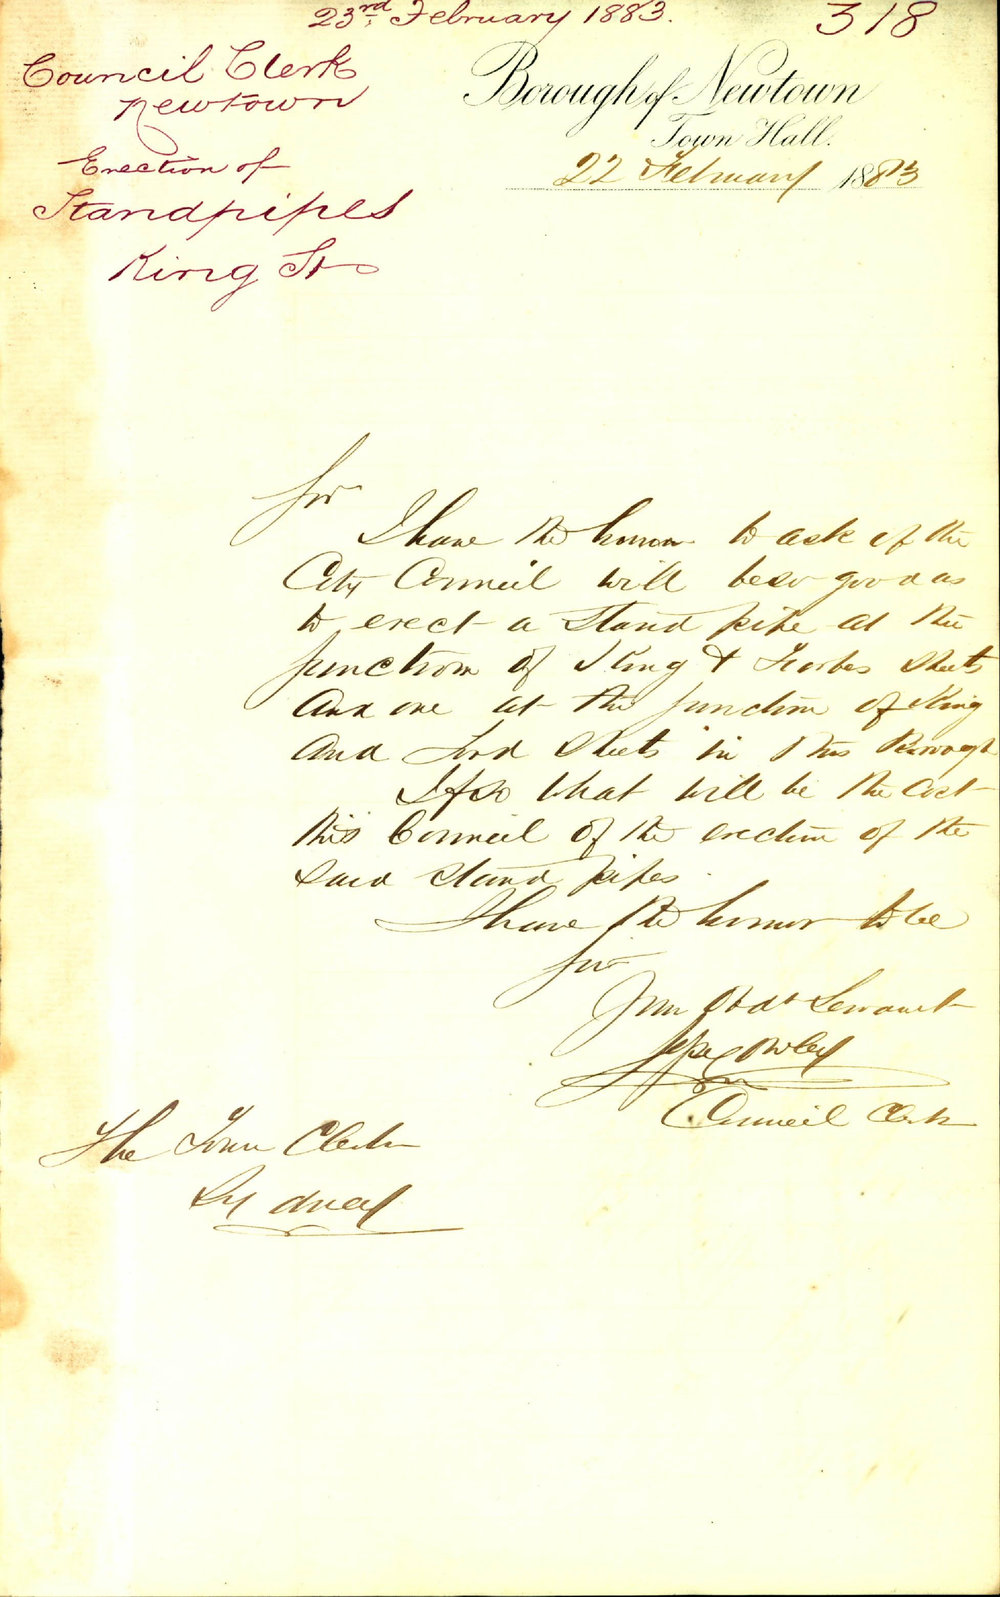 23rd February 1883.
318
Council Clerk
Newtown
Erection of
Standpipes
King St
Borough of Newtown
Town Hall.
22 February 1883
Sir
I have the honor to ask if the
City Council will be so good as
to erect a Stand pipe at the
junction of King & Forbes Streets
And one at the junction of King
And Lord Streets in this Borough
If so what will be the cost
this Council of the erection of the
said Stand pipes
I have the honor to be
Sir
Your Obdt Servant
Council Clerk
The Town Clerk
Sydney